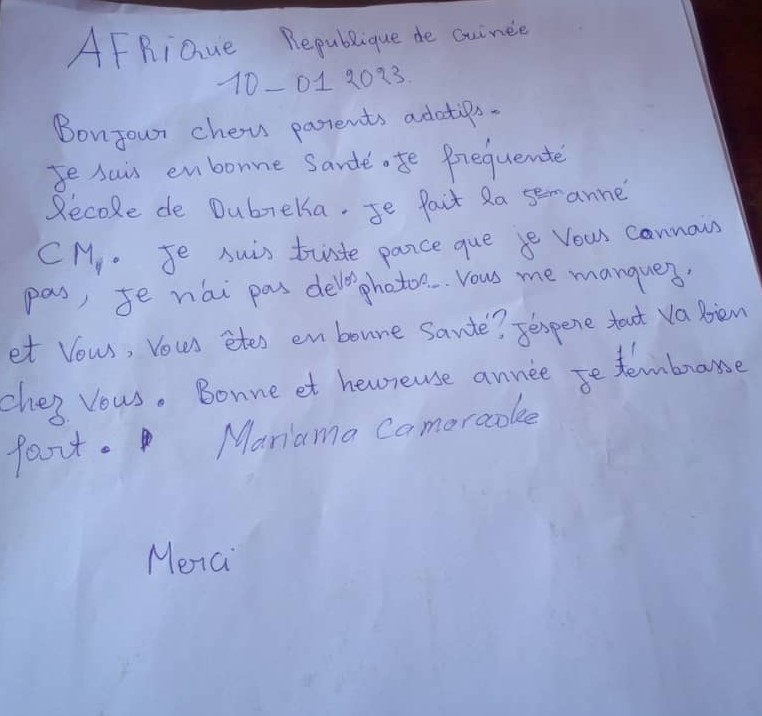 AFRiQue Republique de Guinée
10-01 2023.
Bonjour chers parents adotifs.
Je suis en bonne Santé. Je fréquenté
l'école de Dubreka. Je fait la semanné
CM1. Je suis triste parce que je Vous Connais
pas, Je n'ai pas de vos photos... Vous me manquez,
et Vous, Vous êtes en bonne Santé? J'éspere tout Va bien
chez Vous. Bonne et heureuse année Je t'émbrasse
fort. Mariama Camara
Merci